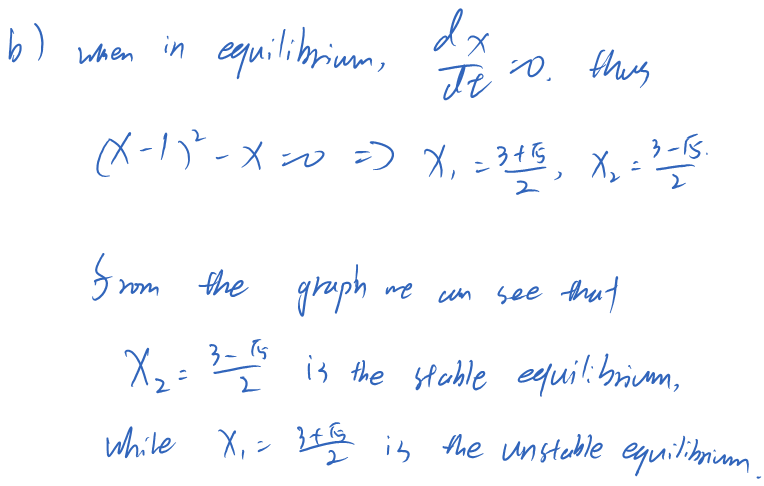 b) when in equilibrium, dx/dt = 0. thus
(x-1)² - x = 0 => x₁ = (3+√5)/2, x₂ = (3-√5)/2.
from the graph we can see that
x₂ = (3-√5)/2 is the stable equilibrium,
while x₁ = (3+√5)/2 is the unstable equilibrium.